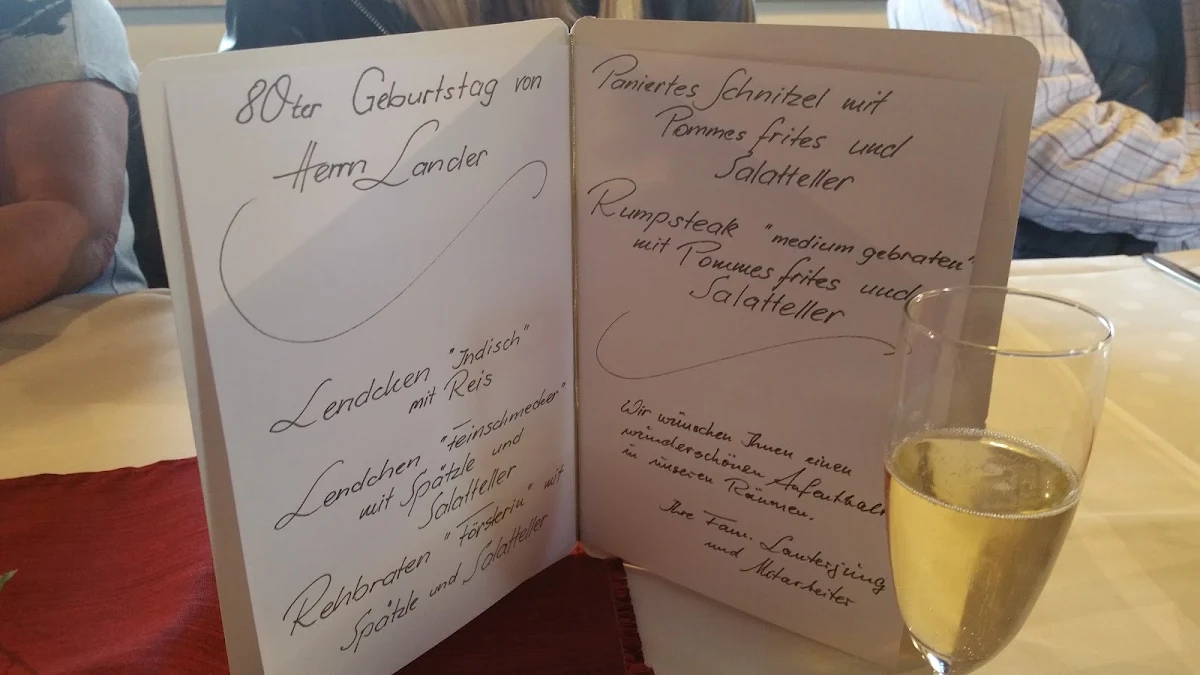 80ter Geburtstag von
Herrn Lander
Lendchen "Indisch"
mit Reis
Lendchen "Feinschmecker"
mit Spätzle und
Salatteller
Rehbraten "Försterin" mit
Spätzle und Salatteller
Paniertes Schnitzel mit
Pommes frites und
Salatteller
Rumpsteak "medium gebraten"
mit Pommes frites und
Salatteller
Wir wünschen Ihnen einen
wunderschönen Aufenthalt
in unseren Räumen.
Ihre Fam. Lauterjung
und Mitarbeiter